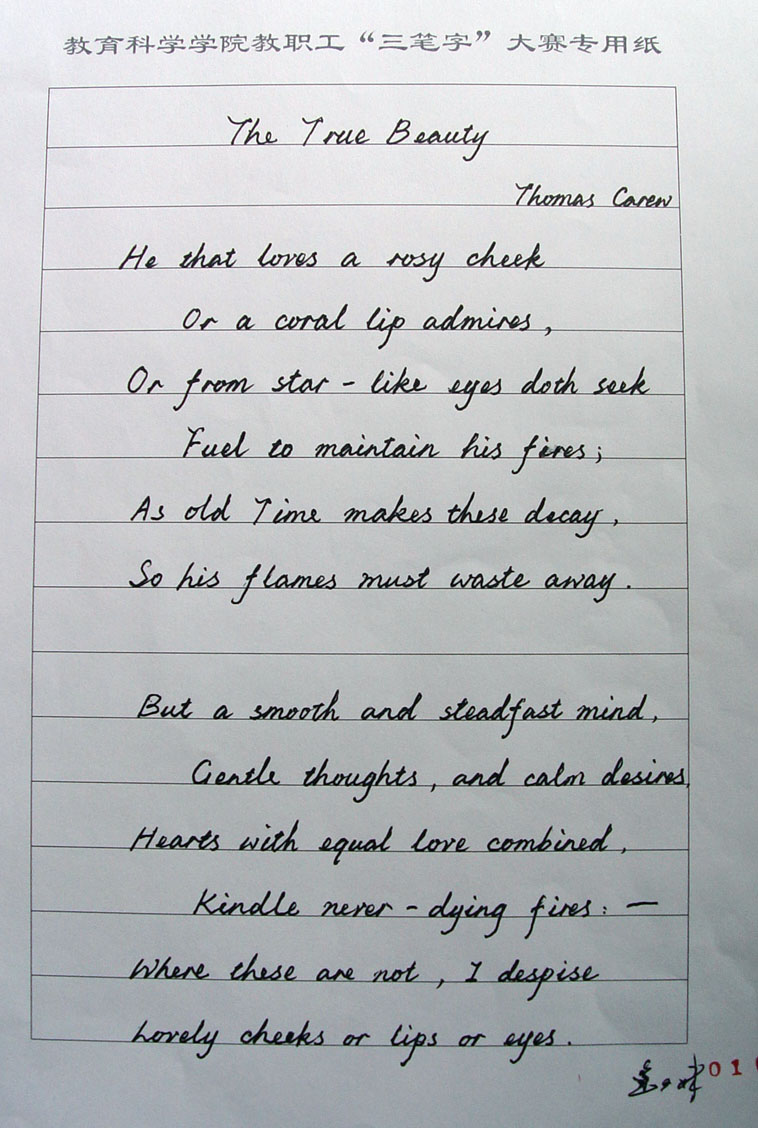 教育科学学院教职工“三笔字”大赛专用纸
The True Beauty
Thomas Carew
He that loves a rosy cheek
Or a coral lip admires,
Or from star-like eyes doth seek
Fuel to maintain his fires;
As old Time makes these decay,
So his flames must waste away.
But a smooth and steadfast mind,
Gentle thoughts, and calm desires,
Hearts with equal love combined,
Kindle never-dying fires:—
Where these are not, I despise
Lovely cheeks or lips or eyes.
01